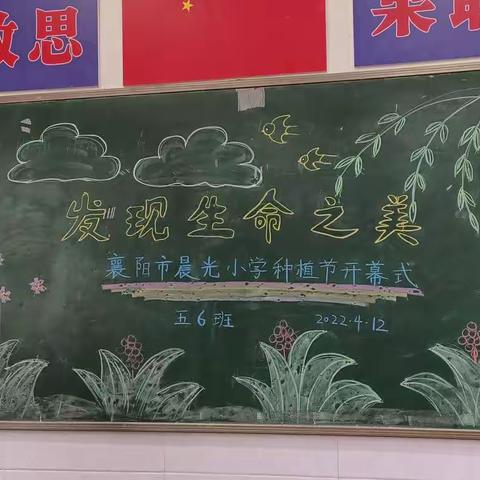 敢思
果敢
发现生命之美
襄阳市晨光小学种植节开幕式
五6班 2022.4.12